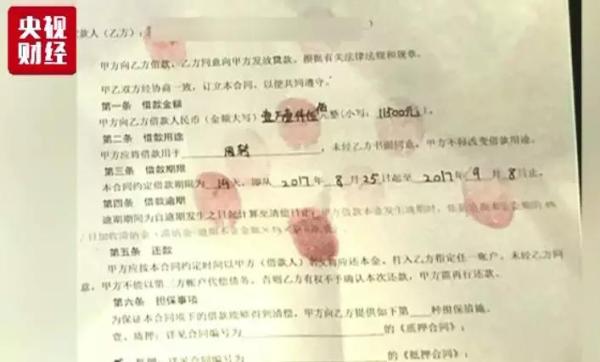 央视
财经
款人(乙方):
甲方向乙方借款,乙方同意向甲方发放贷款,根据有关法律法规和规章,
甲乙双方经协商一致,订立本合同,以便共同遵守。
第一条 借款金额
甲方向乙方借款人民币(金额大写)壹万壹仟伍佰元整(小写:11500元)。
第二条 借款用途
甲方应将借款用于 周转 ,未经乙方书面同意,甲方不得改变借款用途。
第三条 借款期限
本合同约定借款期限为 14天,即从 2017年 8月25日起至 2017年 9月8日止。
第四条 借款逾期
逾期期间为自逾期发生之日起计算至清偿日止,甲方借款本金发生逾期时,
日加收滞纳金
第五条 还款
甲方应按本合同约定时间以甲方(借款人)名义将应还本金,打入乙方指定任一账户。未经乙方同
意,甲方不能以第三方账户代偿债务。否则乙方有权不予确认本次还款,甲方需再行还款。
第六条 担保事项
为保证本合同项下的借款能够得到清偿,甲方向乙方提供如下第 种担保措施。
壹、质押:详见合同编号为 的《质押合同》;
抵押:详见合同编号为 的《抵押合同》;